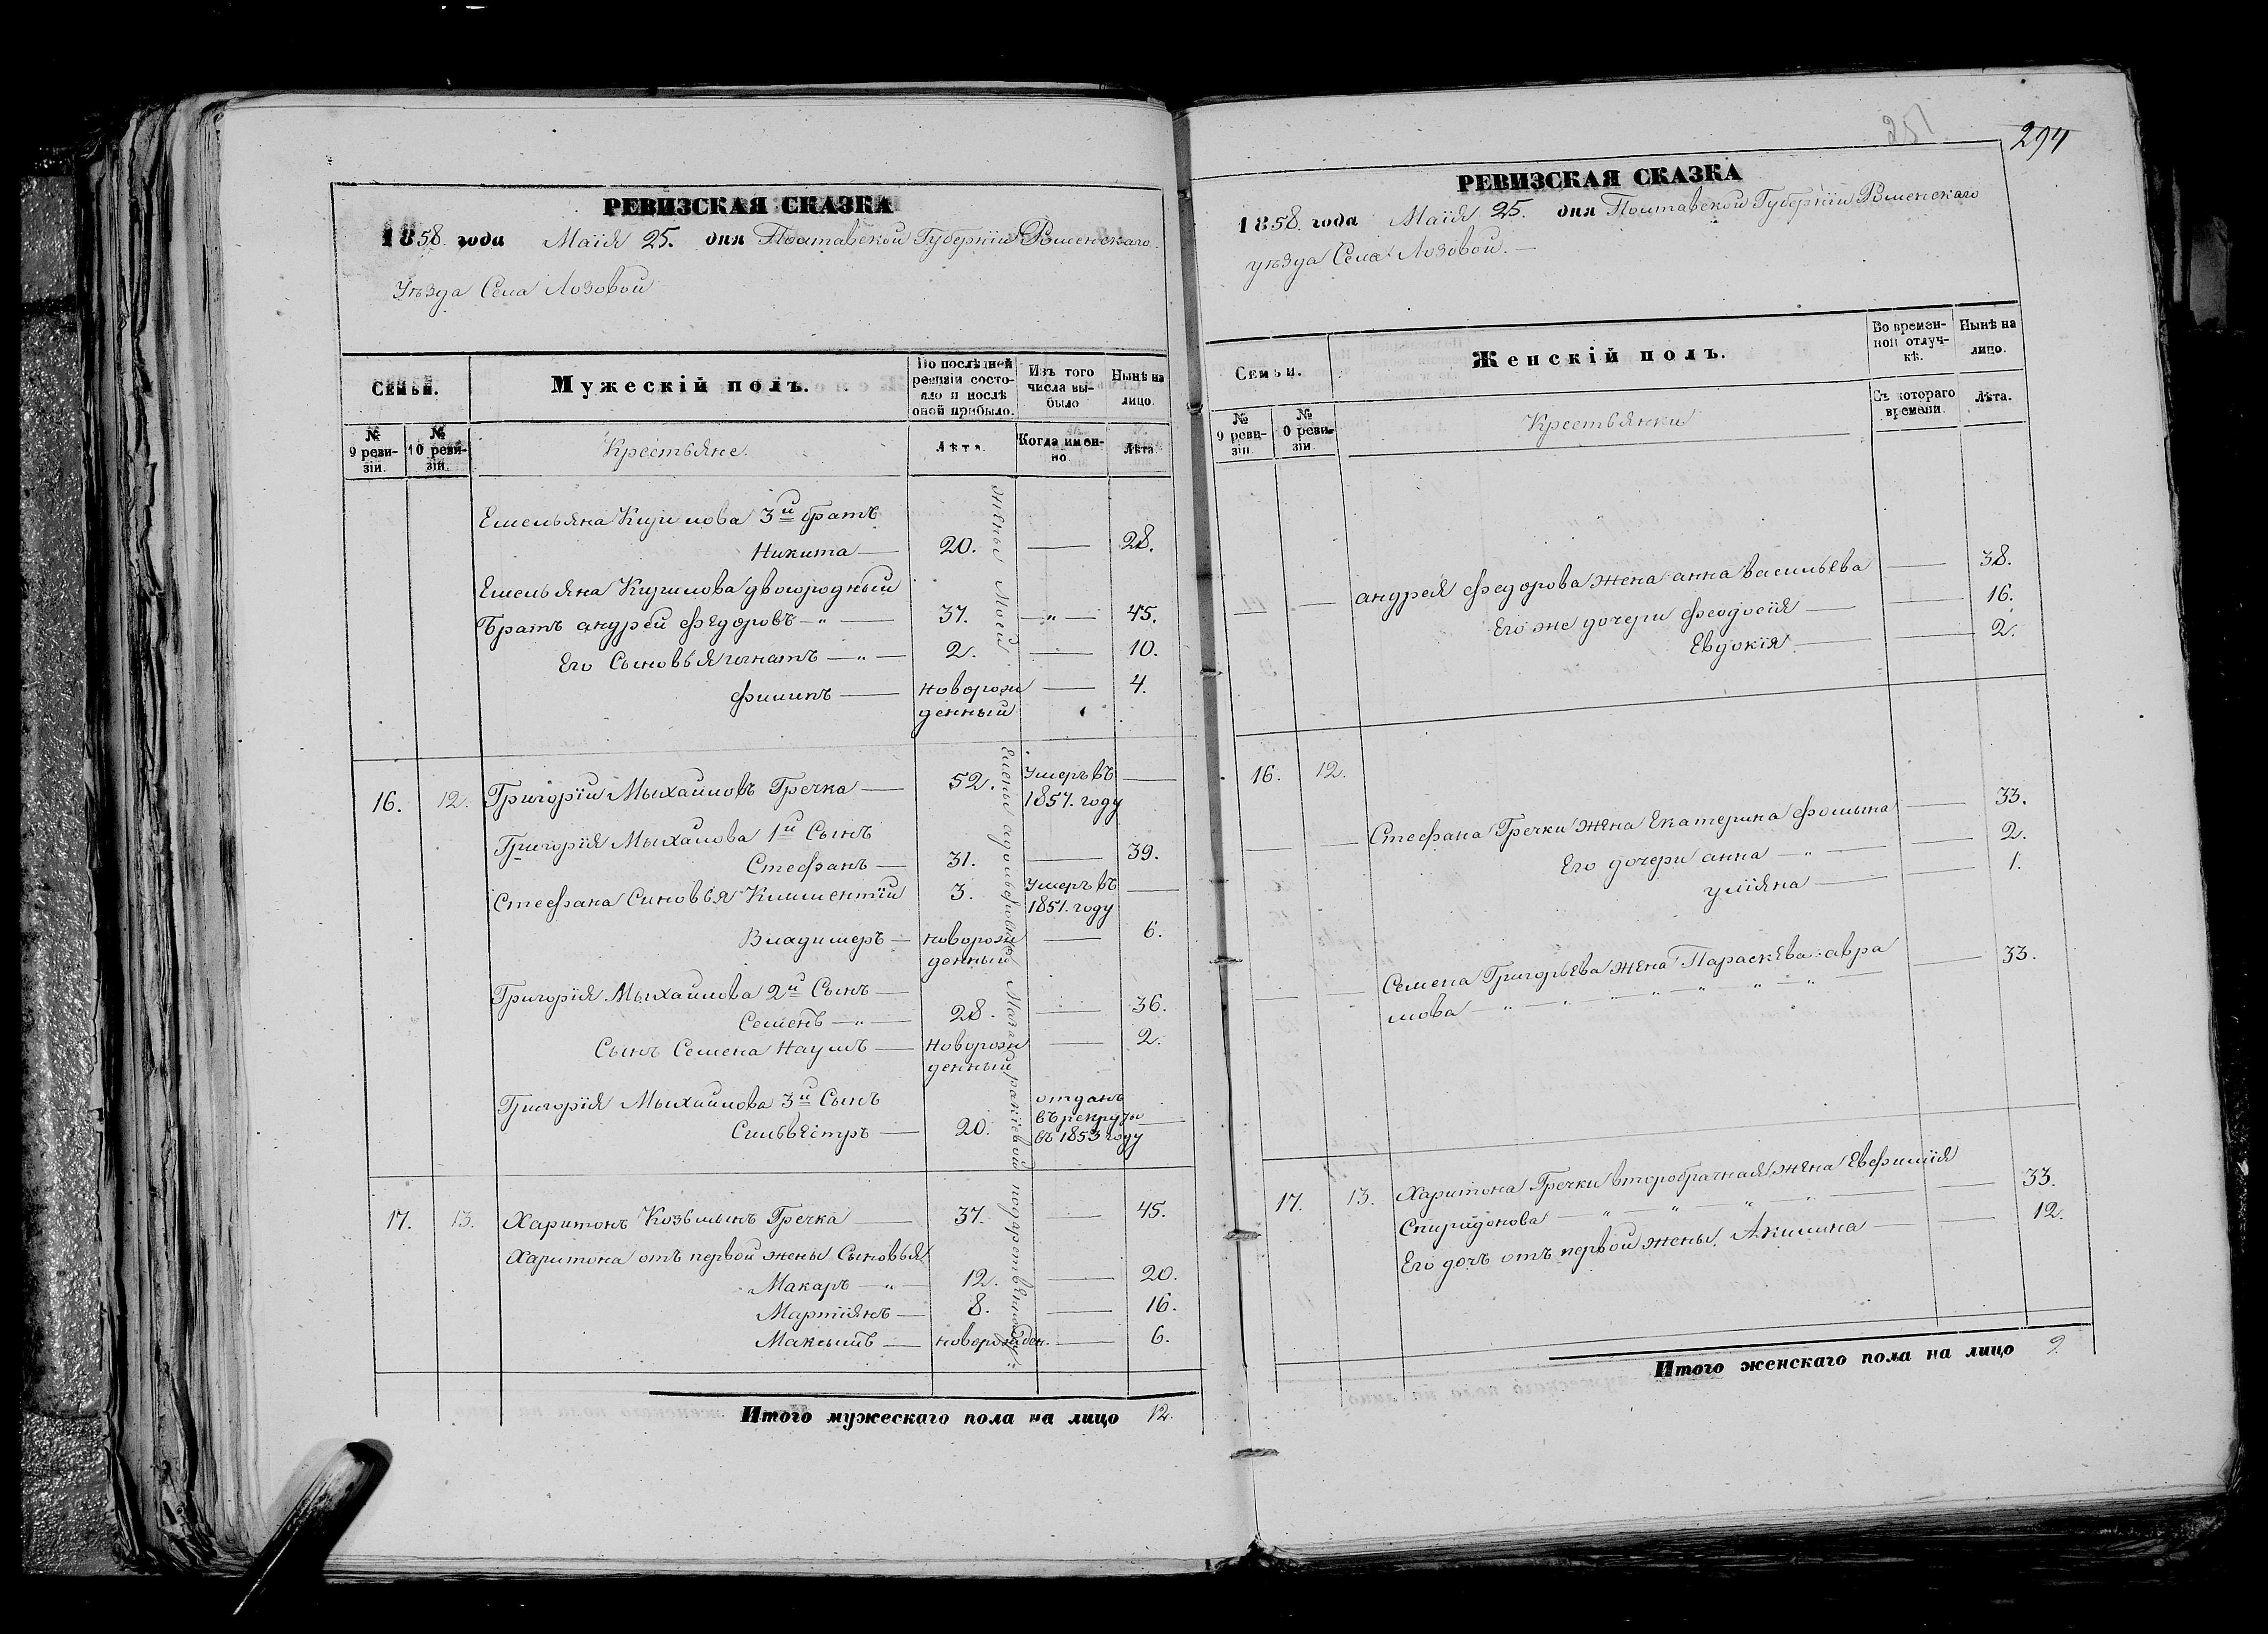 РЕВИЗСКАЯ СКАЗКА
1858. года Маія 25. дня Полтавской Губерніи Роменскаго
Уѣзда Села Лозовой
Семьи.
Мужескій полъ.
По послѣдней ревизіи состояло и послѣ оной прибыло.
Изъ того числа выбыло
Нынѣ на лицо.
№ 9 ревизіи.
№ 10 ревизіи.
Крестьяне.
Лѣта.
Когда именно.
Лѣта.
Емельяна Кирилова 3й братъ
Никита — 20. — 28.
Емельяна Кирилова двоюродный
Братъ андрей Федоровъ — " — 37. — " — 45.
Его Сыновья игнатъ — " — 2. — 10.
Филипъ — новорож — 4.
денный
16. 12. Григорій Мыхайловъ Гречка — 52. Умеръ въ —
1857. году
Григорія Мыхайлова 1й Сынъ
Стефанъ — 31. — 39.
Стефана Синовья Климентій 3. Умеръ въ —
1851. году
Владимеръ — новорож — 6.
денный
Григорія Мыхайлова 2й Сынъ —
Семенъ — " — 28. — 36.
Сынъ Семена Наумъ — новорож — 2.
денный
Григорія Мыхайлова 3й Сынъ отданъ
въ рекруты —
Сильвестръ — 20. въ 1853 году
17. 13. Харитонъ Козьминъ Гречка — 37. — 45.
Харитона отъ первой жены Сыновья
Макаръ — " — 12. — 20.
Мартіянъ — 8. — 16.
Максимъ — новорожден. — 6.
жены Моей
Елены адольфовны
Итого мужескаго пола на лицо 12.
251
294
РЕВИЗСКАЯ СКАЗКА
1858. года Маія 25. дня Полтавской Губерніи Роменскаго
уѣзда Села Лозовой. —
Семьи.
Женскій полъ.
Во временной отлучкѣ.
Нынѣ на лицо.
№ 9 ревизіи
№ 0 ревизіи
Крестьянки
Съ котораго времени.
Лѣта.
— — андрея федорова жена анна васильева — 38.
Его же дочери феодосія — — 16.
Евдокія — — 2.
16. 12.
— — Стефана Гречки жена Екатерина фомына — 33.
Его дочери анна — " — — 2.
уліяна — — 1.
— — Семена Григорьева жена Параскева авра — 33.
мова — " — " — " — " — " — "
17. 13. Харитона Гречки второбрачная жена Евфимія
Спиридонова — " — " — " — — 33.
Его дочъ отъ первой жены. Акилина — — 12.
Итого женскаго пола на лицо 9.